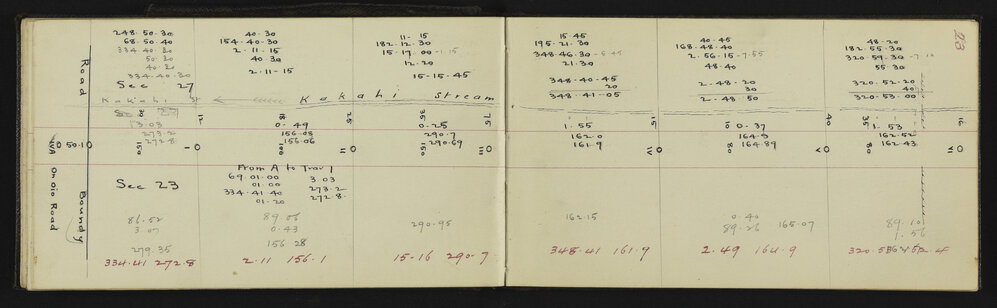 23
248-50-30
68-50-40
334-40-30
50-30
40-30
334-40-30
Sec 27
40-30
154-40-30
2-11-15
40-30
2-11-15
11-15
182-12-30
15-17-00-1-15
12-20
15-15-45
15-45
195-21-30
348-46-30-5-45
21-30
348-40-45
20
348-41-05
40-45
168-48-40
2-56-15-7-55
48-40
2-48-20
30
2-48-50
48-20
182-55-30
320-59-30-7-10
55-30
320-52-20
40
320-53-00
Road
Kakahi St
Kakahi Stream
Sec 27
3-03
273-2
272-8
0-49
156-08
156-06
0-25
290-7
290-69
1-55
162-0
161-9
0-37
164-9
164-89
1-53
162-52
162-43
12
18
25
35
75
15
35
40
35
16
50-1
150
I
100
II
150
III
IV
80
V
80
VI
Ongio Road
Boundy
Sec 23
From A to Trav I
69-01-00 3-03
01-00 273-2
334-41-40 272-8
01-20
86-52
3-07
279-35
89-06
0-43
156 28
290-95
162-15
0-40
89-26 165-07
89-10
1-56
334-41 272-8
2-11 156-1
15-16 290-7
348-41 161-9
2-49 164-9
320-53